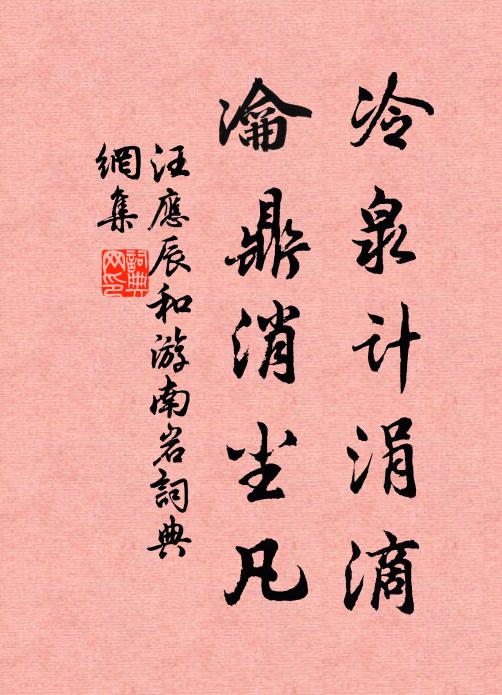 冷泉计涓滴
瀹鼎消尘凡
汪應辰和游南岩詞典
網集
詞典
网印